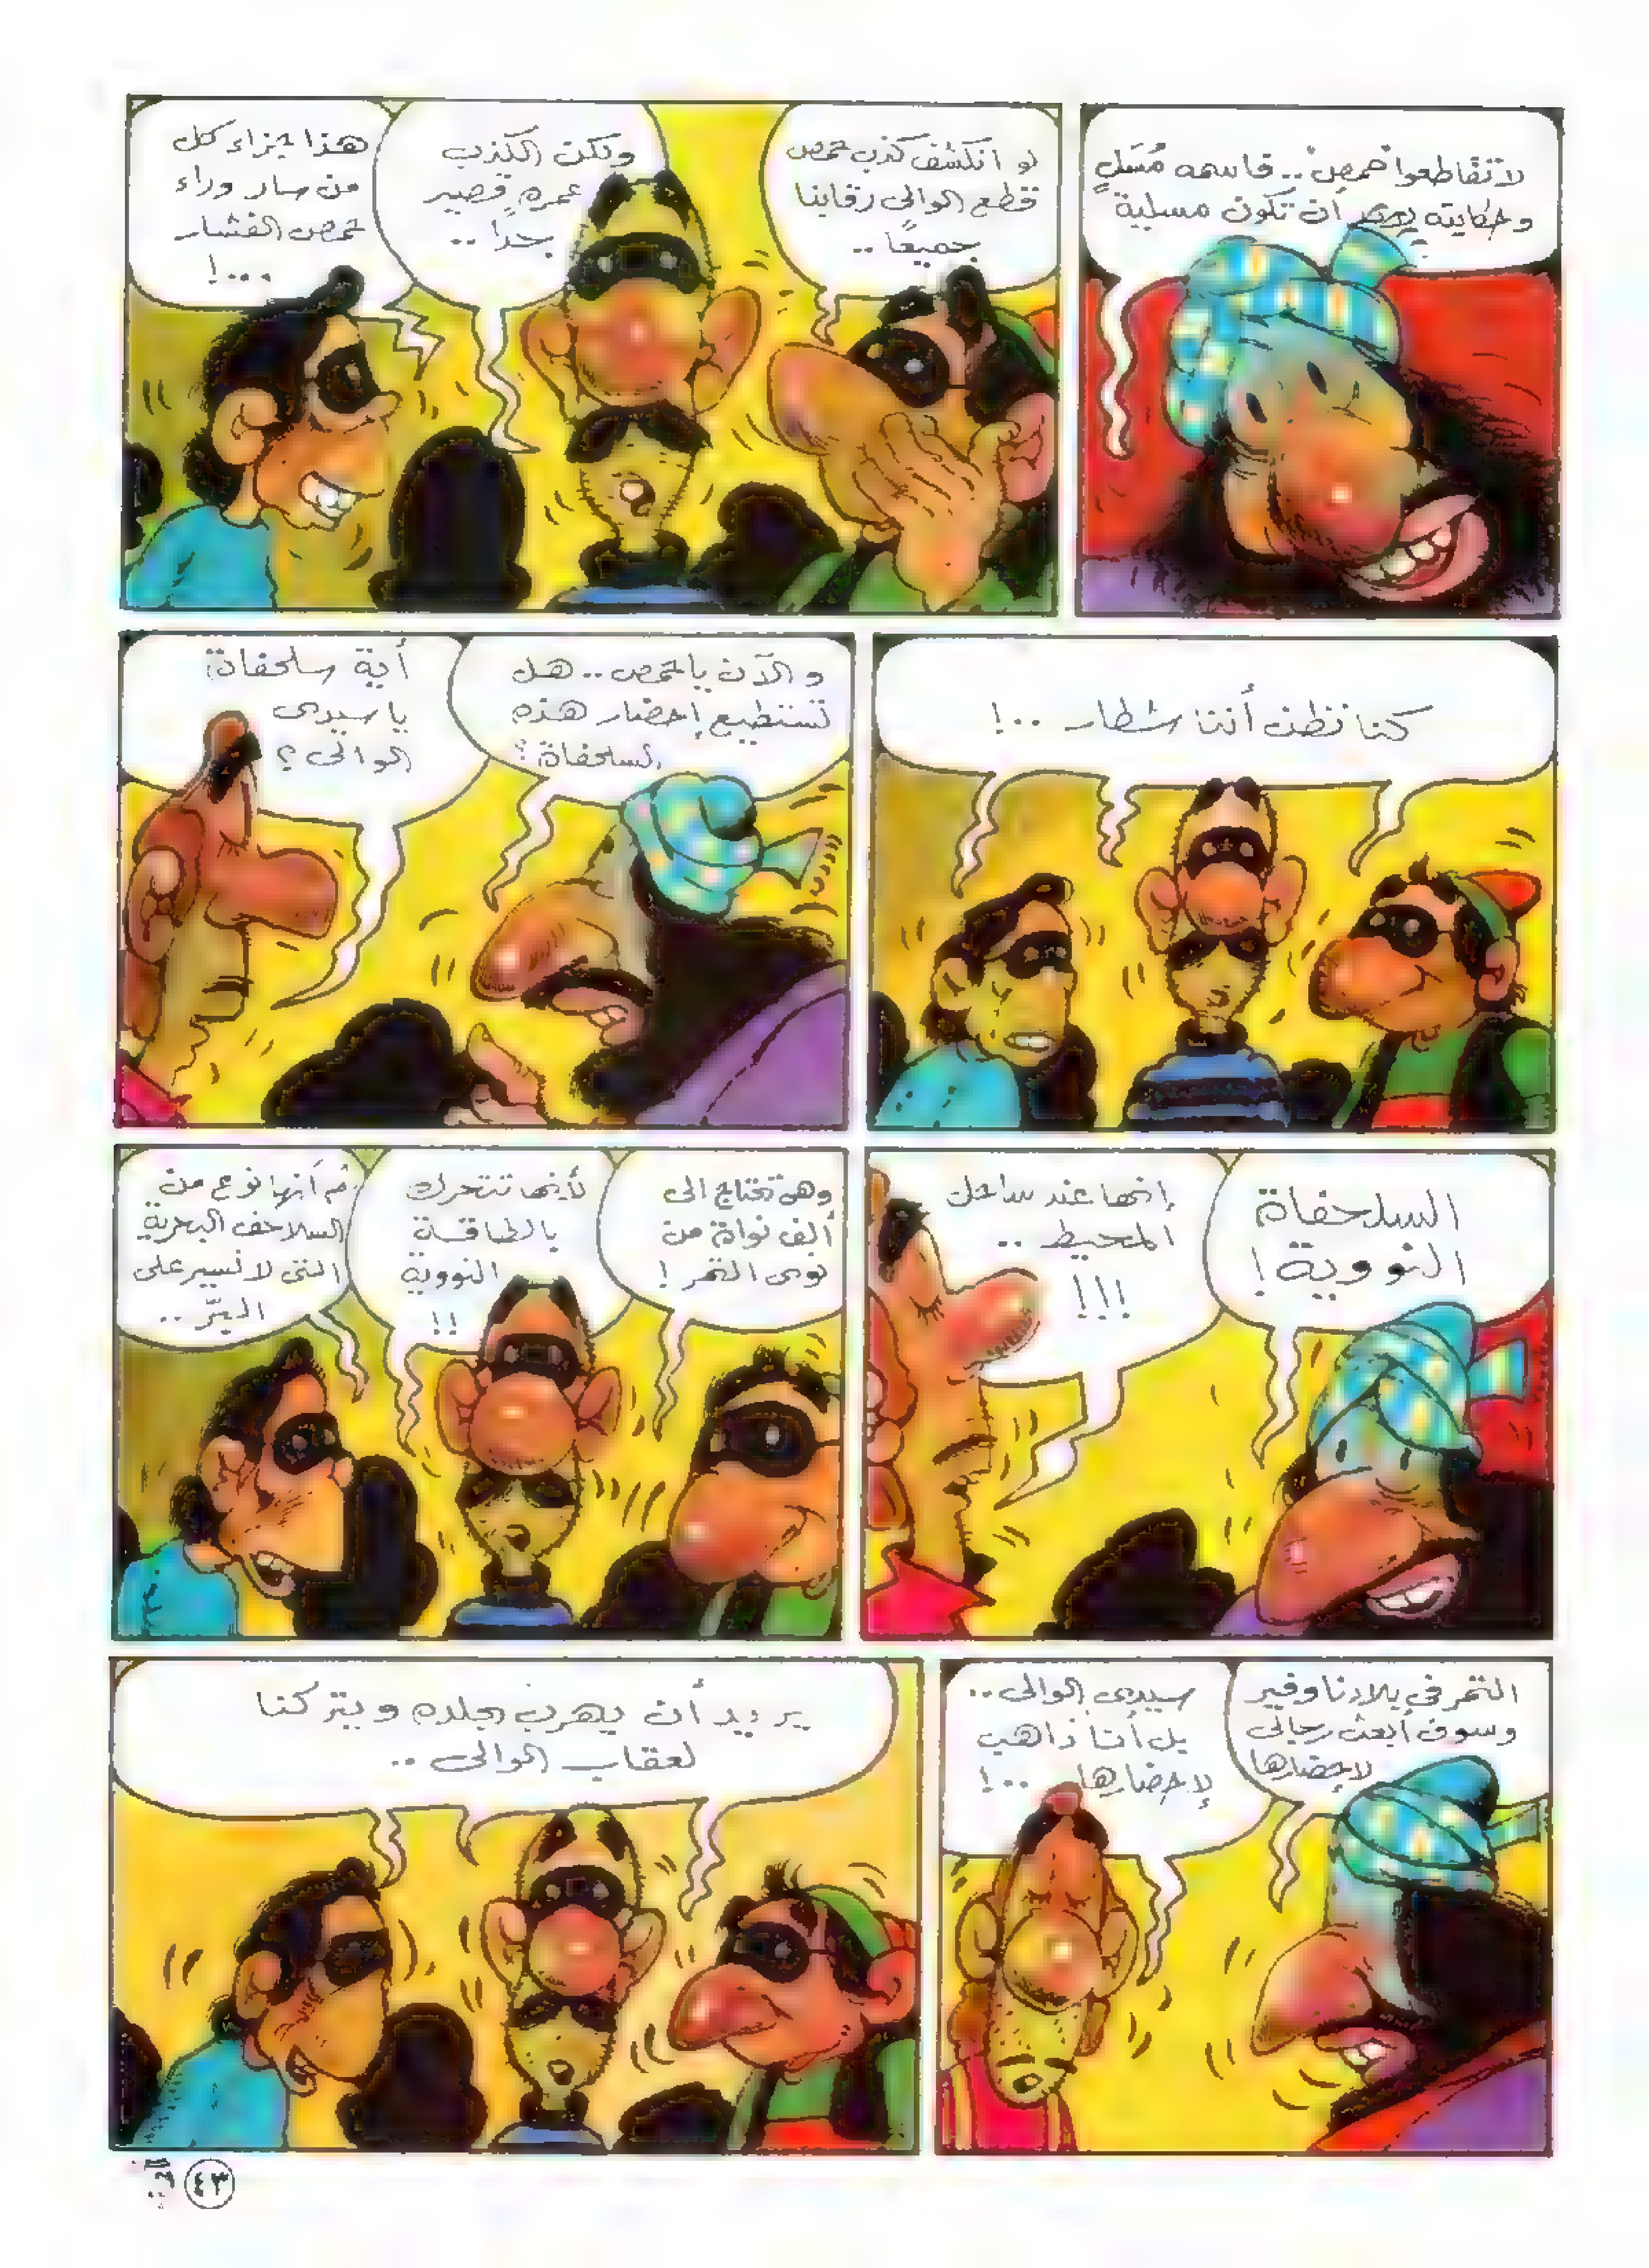 لا تقاطعوا "حمص".. فاسمه مُسَلٍ
وحكايته يجب أن تكون مسلية
لو انكشف كذب حمص
قطع الوالى رقابنا
جميعًا..
ولكن الكذب
عمره قصير
جدًا..
هذا جزاء كل
من سار وراء
حمص الفشار
...!
كنا نظن أننا شطار ..!
و الآن يا حمص.. هل
تستطيع إحضار هذه
السلحفاة؟
أية سلحفاة
يا سيدى
الوالى؟
السلحفاة
النووية!
إنها عند ساحل
المحيط ..
!!!
وهى تحتاج الى
ألف نواة من
نوى التمر!
لأنها تتحرك
بالطاقة
النووية
!!
ثم أنها نوع من
السلاحف البحرية
التى لا تسير على
البرّ..
التمر فى بلادنا وفير
وسوف أبعث رجالى
لإحضارها
سيدى الوالى..
بل أنا ذاهب
لإحضارها ..!
يريد أن يهرب بجلده ويتركنا
لعقاب الوالى ..
٤٣